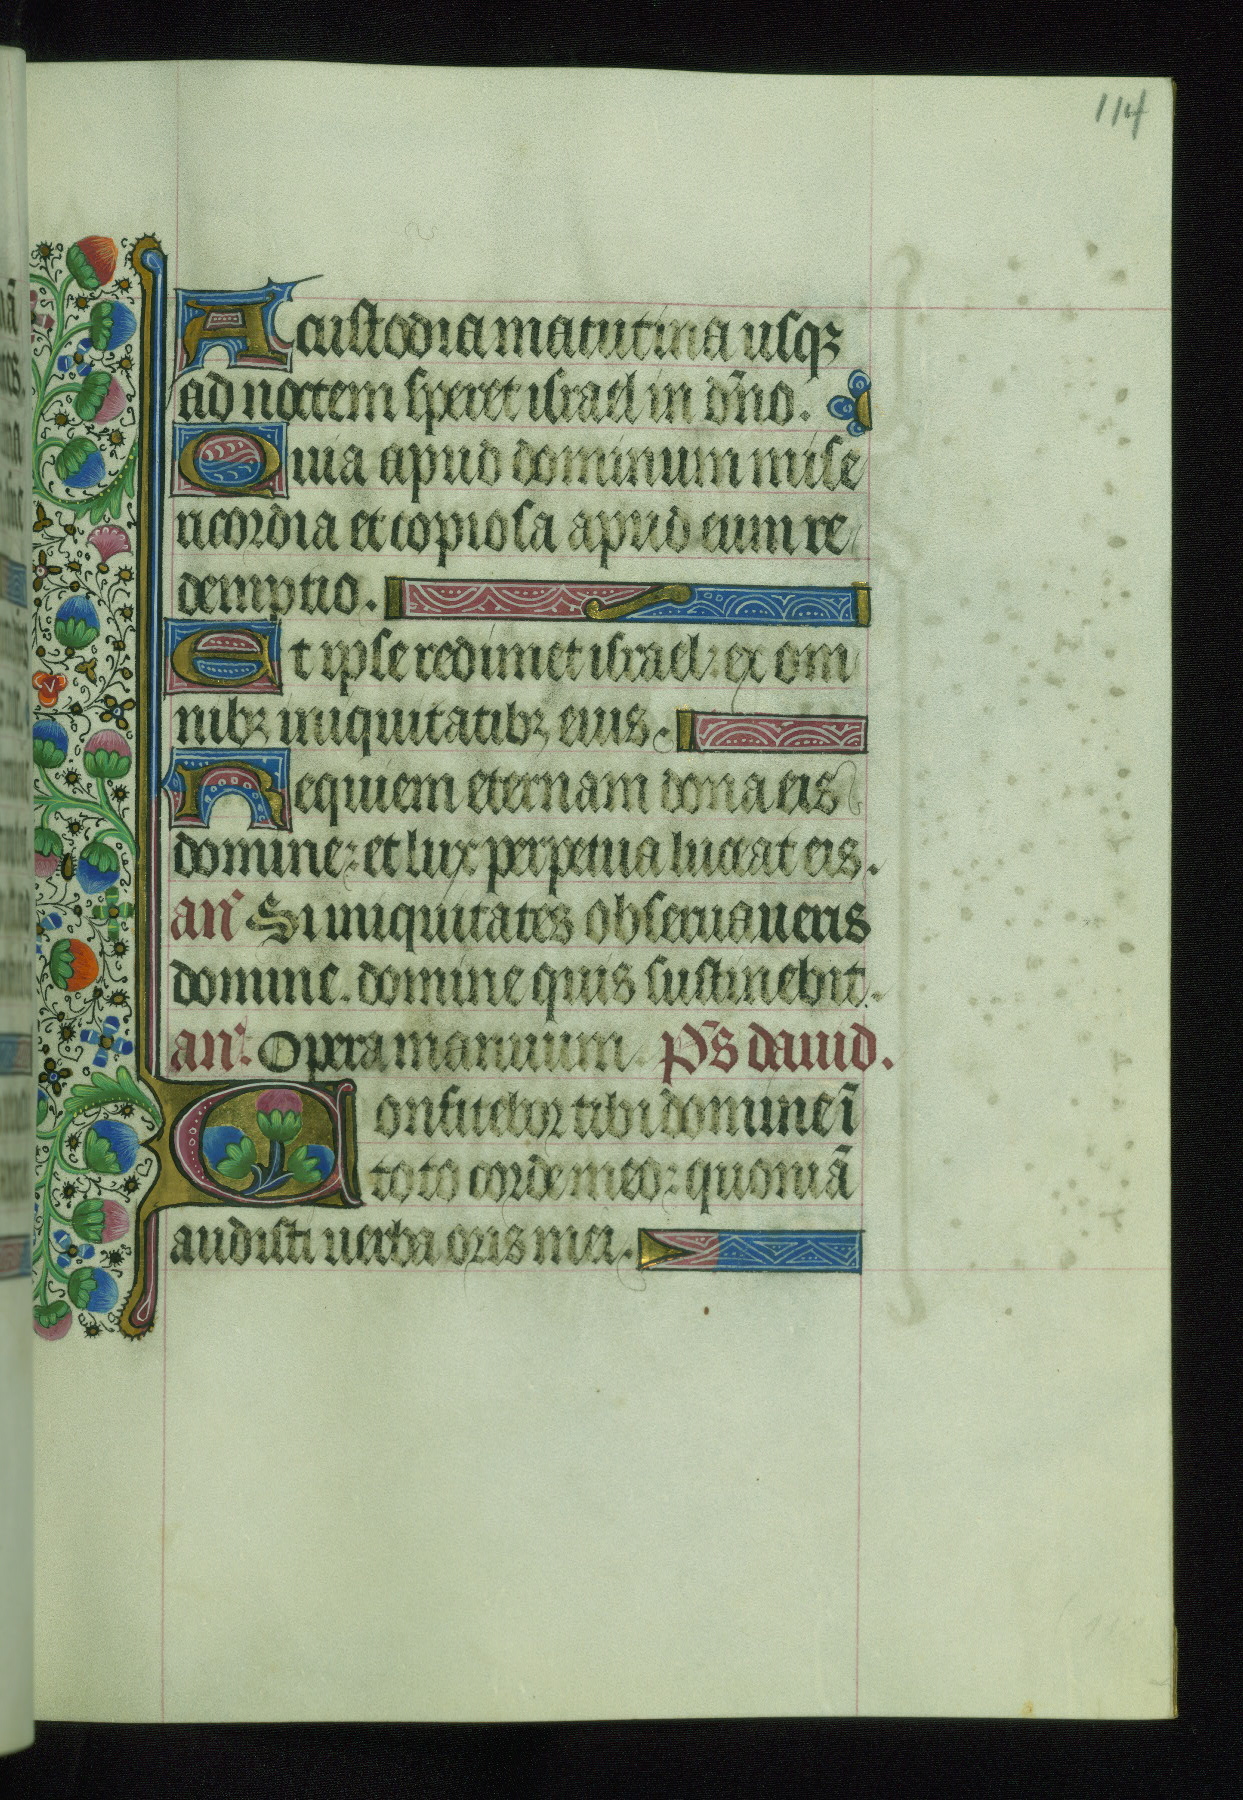 114
A custodia matutina usqꝫ
ad noctem speret israel in dn̄o.
Quia apud dominum mise
ricordia et copiosa apud eum re
demptio.
Et ipse redimet israel: ex om
nibꝫ iniquitatibꝫ eius.
Requiem eternam dona eis
domine: et lux perpetua luceat eis.
an̄ Si iniquitates obseruaueris
domine. domine quis sustinebit.
an̄: Opera manuum. P̄s dauid.
Confitebor tibi domine ī
toto corde meo: quoniā
audisti uerba oris mei.